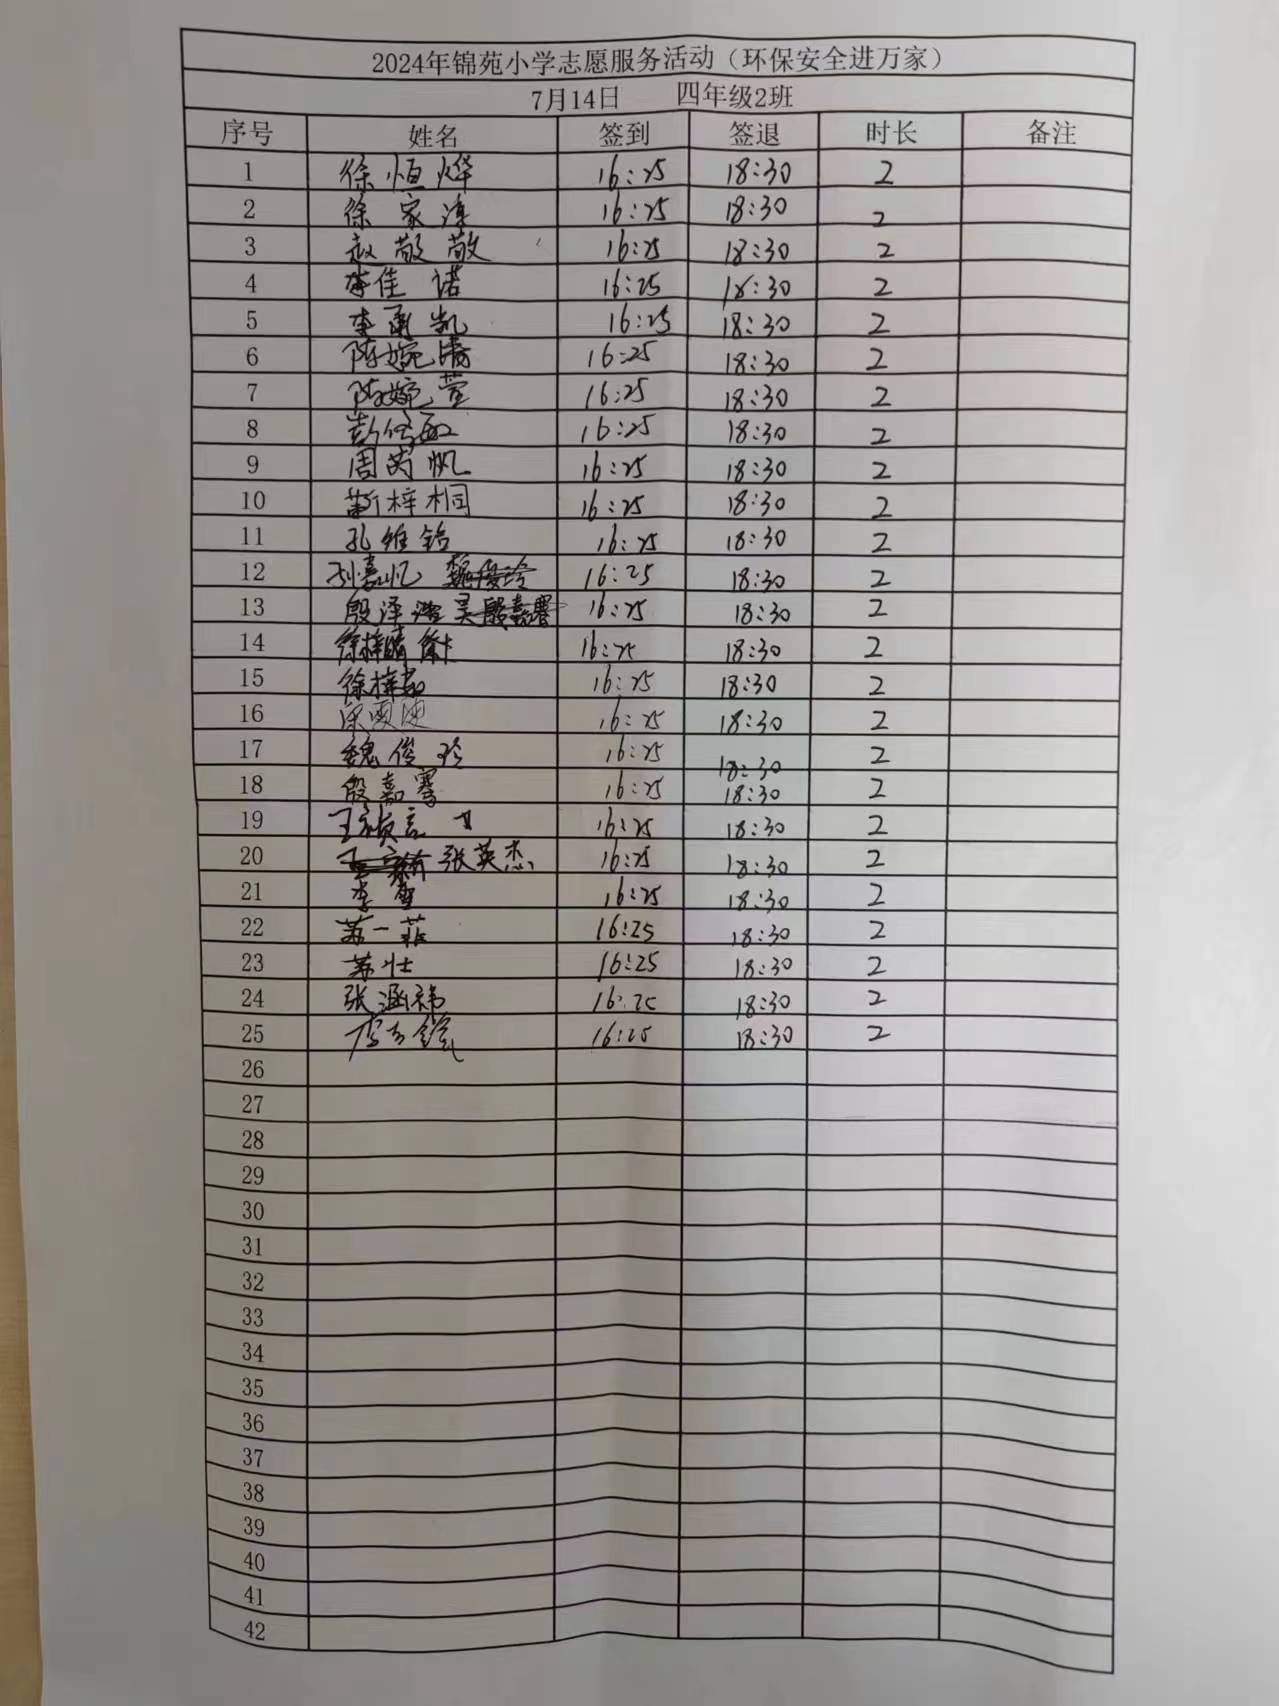 2024年锦苑小学志愿服务活动（环保安全进万家）
7月14日 四年级2班
序号 姓名 签到 签退 时长 备注
1 徐恒烨 16:25 18:30 2
2 徐家 16:25 18:30 2
3 赵敬敬 16:25 18:30 2
4 李佳诺 16:25 18:30 2
5 李勇凯 16:25 18:30 2
6 陈婉清 16:25 18:30 2
7 陈婉萱 16:25 18:30 2
8 彭 16:25 18:30 2
9 周芮帆 16:25 18:30 2
10 靳梓桐 16:25 18:30 2
11 孔维铭 16:25 18:30 2
12 刘嘉忆 16:25 18:30 2
13 殷泽浩 16:25 18:30 2
14 徐梓晴 16:25 18:30 2
15 徐梓 16:25 18:30 2
16 16:25 18:30 2
17 魏俊玲 16:25 18:30 2
18 殷嘉骞 16:25 18:30 2
19 王祯言 16:25 18:30 2
20 张英杰 16:25 18:30 2
21 李 16:25 18:30 2
22 苏一菲 16:25 18:30 2
23 苏壮 16:25 18:30 2
24 张涵祎 16:25 18:30 2
25 16:25 18:30 2
26
27
28
29
30
31
32
33
34
35
36
37
38
39
40
41
42